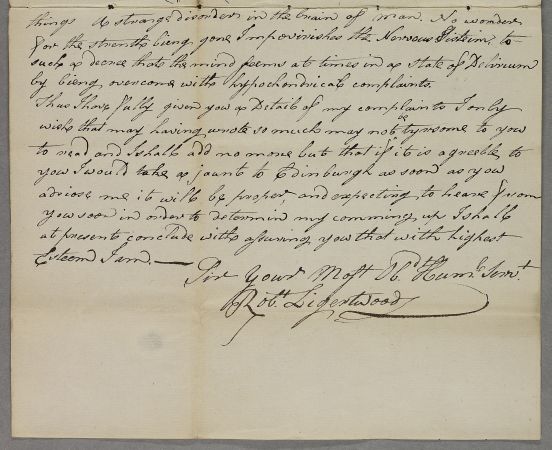 things & strange disorders in the brain of man. No wonder
for the strenth being gone Impovirishes the Nervous Sistim, to
such a decree that the mind seems at times in a state of Delirium
by being overcome with hypochondrical complaints.
Thus I have fully given you a Detail of my complaints I only
wish that my having wrote so much may not be tyresome to you
to read and I shall add no more but that if it is agreeable to
you I would take a jaunt to Edinburgh as soon as you
advise me it will be proper, and expecting to heare from
you soon in order to determin my comming up I shall
at present conclude with assuring you that with highest
Esteem I am.—
Sir Your Most Obdt. Humle. Servt.
Robt. Ligertwood